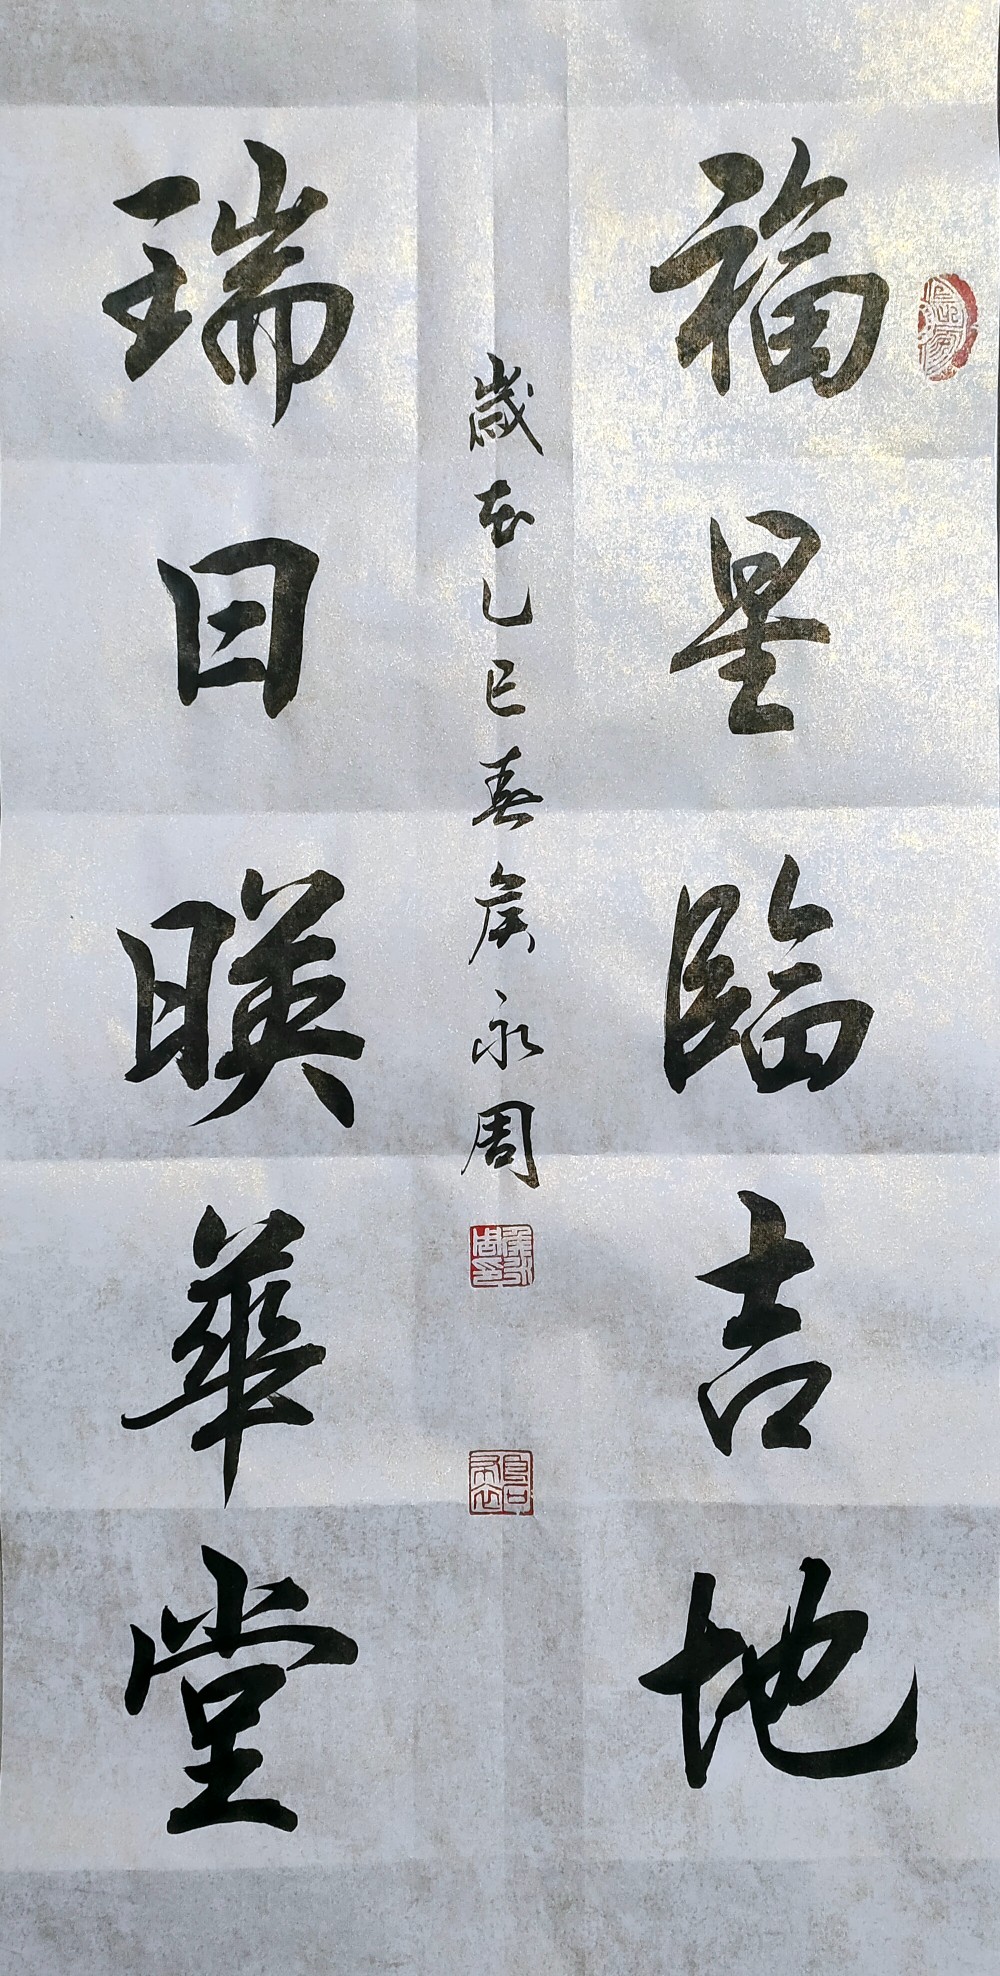 福星臨吉地
瑞日暎華堂
歲在乙巳春侯永周